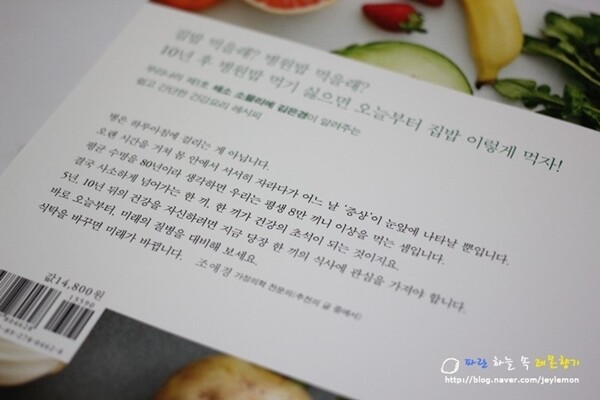 집밥 먹을래? 병원밥 먹을래?
10년 후 병원밥 먹기 싫으면 오늘부터 집밥 이렇게 먹자!
우리나라 제1호 채소 소믈리에 김은경이 알려주는
쉽고 간단한 건강요리 레시피
병은 하루아침에 걸리는 게 아닙니다.
오랜 시간을 거쳐 몸 안에서 서서히 자라다가 어느 날 '증상'이 눈앞에 나타날 뿐입니다.
평균 수명을 80년이라 생각하면 우리는 평생 8만 끼니 이상을 먹는 셈입니다.
결국 사소하게 넘어가는 한 끼, 한 끼가 건강의 초석이 되는 것이지요.
5년, 10년 뒤의 건강을 자신하려면 지금 당장 한 끼의 식사에 관심을 가져야 합니다.
바로 오늘부터, 미래의 질병을 대비해 보세요.
식탁을 바꾸면 미래가 바뀝니다.
조애경 가정의학 전문의(추천의 글 중에서)
값14,800원
파란 하늘 속 레몬향기
http://blog.naver.com/jeylemon